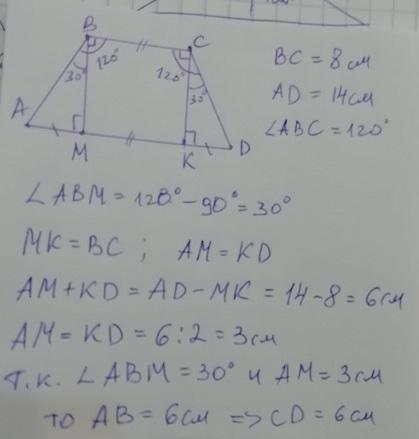 B
C
120°
30°
120°
30°
A
M
K
D
BC = 8 см
AD = 14 см
∠ABC = 120°
∠ABM = 120° - 90° = 30°
MK = BC ; AM = KD
AM + KD = AD - MK = 14 - 8 = 6 см
AM = KD = 6 : 2 = 3 см
Т.К. ∠ABM = 30° и AM = 3 см
то AB = 6 см => CD = 6 см